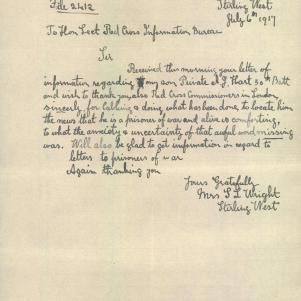 File 2412
Stirling West
July 6th 1917
To Hon. Sect Red Cross Information Bureau
Sir
Received this morning your letter of
information regarding my son Private A J Hart 50th Batt
and wish to thank you also Red Cross Commissioners in London,
sincerely for Cabling & doing what has been done, to locate him
the news that he is a prisoner of war and alive is comforting,
to what the anxiety & uncertainty of that awful word missing
was. Will also be glad to get information in regard to
letters to prisoners of war
Again thanking you
Yours Gratefully
Mrs S L Wright
Stirling West